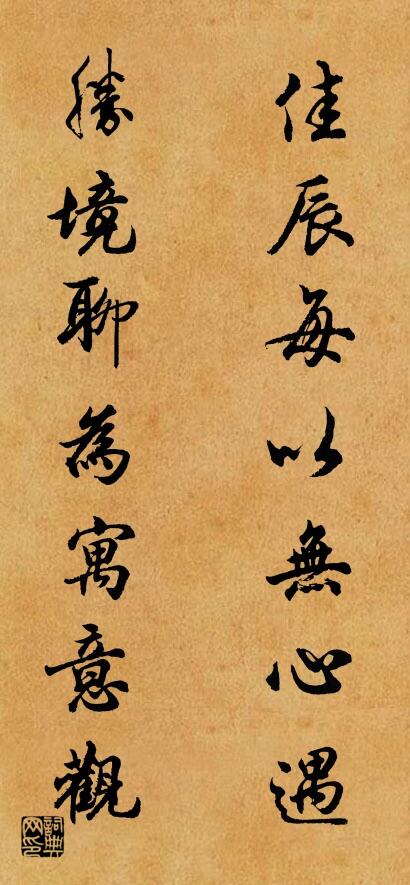 佳辰每以無心遇
勝境聊為寓意觀
詞典网印